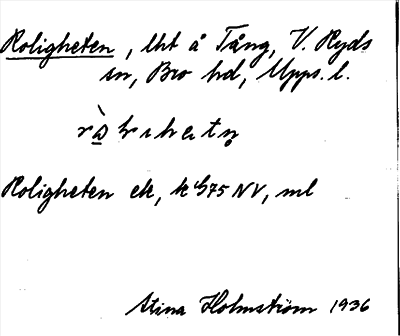 Roligheten, lht å Tång, V. Ryds
sn, Bro hd, Upps. l.
Roligheten ek, k 575 NV, ml
Stina Holmström 1936